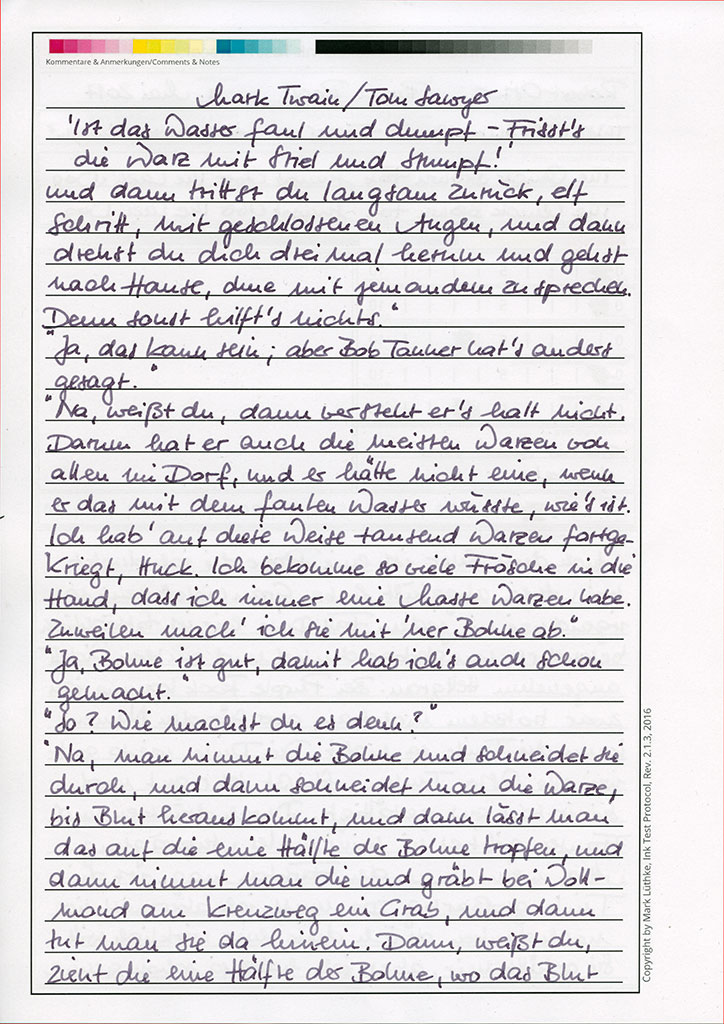 Kommentare & Anmerkungen/Comments & Notes
Mark Twain/Tom Sawyer
'Ist das Wasser faul und dumpf – Frisst's
die Warz mit Stiel und Stumpf!'
und dann trittst du langsam zurück, elf
Schritt, mit geschlossenen Augen, und dann
drehst du dich drei mal herum und gehst
nach Hause, ohne mit jemandem zu sprechen.
Denn sonst hilft's nichts."
"Ja, das kann sein; aber Bob Tanner hat's anders
gesagt."
"Na, weißt du, dann versteht er's halt nicht.
Darum hat er auch die meisten Warzen von
allen im Dorf, und er hätte nicht eine, wenn
er das mit dem faulen Wasser wüsste, wie's ist.
Ich hab' auf diese Weise tausend Warzen fortge-
kriegt, Huck. Ich bekomme so viele Frösche in die
Hand, dass ich immer eine Masse Warzen habe.
Zuweilen mach' ich sie mit 'ner Bohne ab."
"Ja, Bohne ist gut, damit hab ich's auch schon
gemacht."
"So? Wie machst du es denn?"
"Na, man nimmt die Bohne und schneidet sie
durch, und dann schneidet man die Warze,
bis Blut herauskommt, und dann lässt man
das auf die eine Hälfte der Bohne tropfen, und
dann nimmt man die und gräbt bei Voll-
mond am Kreuzweg ein Grab, und dann
tut man sie da hinein. Dann, weißt du,
zieht die eine Hälfte der Bohne, wo das Blut
Copyright by Mark Luthke, Ink Test Protocol, Rev. 2.1.3, 2016